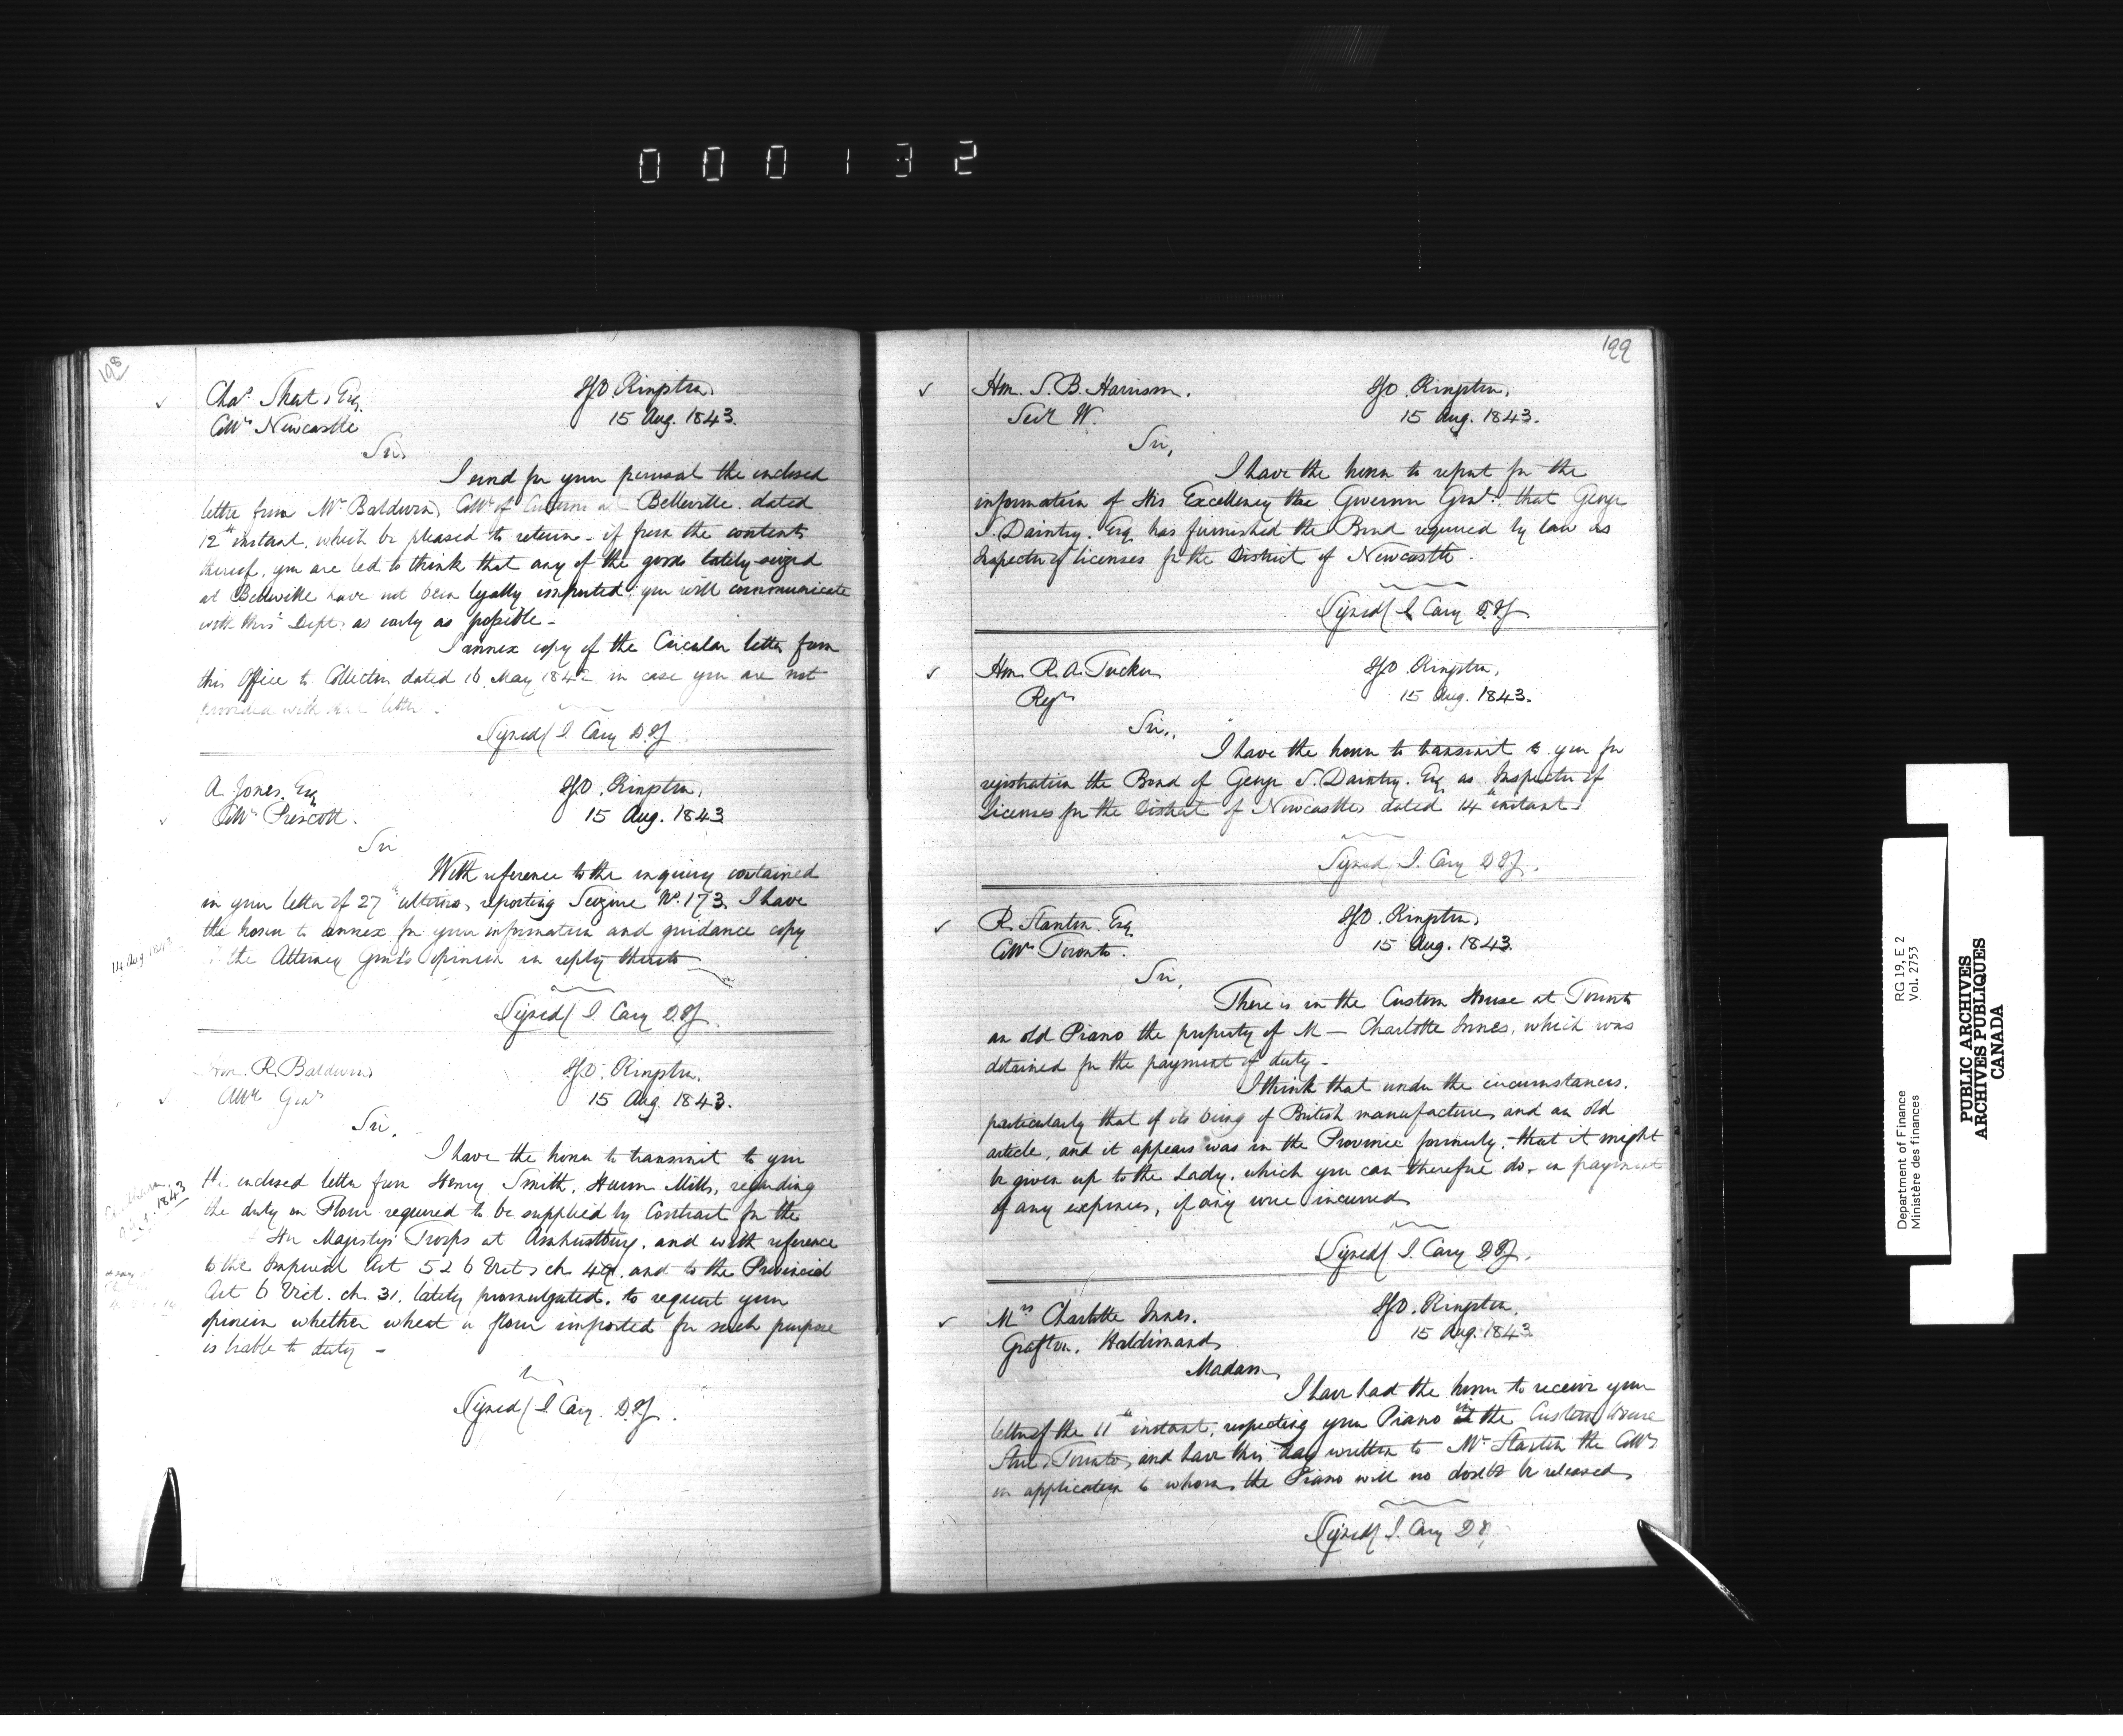 000132
198
Chas. Short, Esq.
Collr. Newcastle
I.G.O. Kingston,
15 Aug. 1843.
Sir,
I send for your perusal the enclosed
letter from Mr. Baldwin, Collr. of Customs at Belleville dated
12th instant, which be pleased to return - if from the contents
thereof, you are led to think that any of the goods lately seized
at Belleville have not been legally imported; you will communicate
with this Dept. as early as possible -
I annex copy of the Circular letter from
this Office to Collectors dated 16 May 1842 in case you are not
provided with that letter.
Signed/ J. Cary D.I.G.
A. Jones, Esq
Collr. Prescott.
I.G.O. Kingston,
15 Aug. 1843
Sir
With reference to the inquiry contained
in your letter of 27th ultimo, reporting Seizure No. 173, I have
the honor to annex for your information and guidance copy
the Attorney Genl's opinion in reply thereto
14 Aug. 1843
Signed/ J. Cary D.I.G.
Hon. R. Baldwin
Atty. Genl.
I.G.O. Kingston,
15 Aug. 1843.
Sir,
I have the honor to transmit to you
the enclosed letter from Henry Smith, Huron Mills, regarding
the duty on Flour required to be supplied by Contract for the
Her Majesty's Troops at Amherstburg, and with reference
to the Imperial Act 5 & 6 Vict. ch. 49, and to the Provincial
Act 6 Vict. ch. 31. lately promulgated, to request your
opinion whether wheat or flour imported for such purpose
is liable to duty -
1843
Signed/ J. Cary. D.I.G.
199
Hon. S. B. Harrison.
Secr. W.
I.G.O. Kingston,
15 Aug. 1843.
Sir,
I have the honor to report for the
information of His Excellency the Governor Genl. that George
S. Daintry, Esq. has furnished the Bond required by law as
Inspector of licenses for the District of Newcastle.
Signed/ J. Cary D.I.G.
Hon. R. A. Tucker
Regr.
I.G.O. Kingston,
15 Aug. 1843.
Sir,
I have the honor to transmit to you for
registration the Bond of George S. Daintry, Esq as Inspector of
licenses for the District of Newcastle, dated 14th instant.
Signed/ J. Cary D.I.G.
R. Stanton, Esq
Collr. Toronto.
I.G.O. Kingston,
15 Aug. 1843.
Sir,
There is in the Custom House at Toronto
an old Piano the property of M— Charlotte Innes, which was
detained for the payment of duty -
I think that under the circumstances,
particularly that of its being of British manufacture, and an old
article, and it appears was in the Province formerly, that it might
be given up to the Lady, which you can therefore do, on payment
of any expenses, if any were incurred
Signed/ J. Cary D.I.G.
Mrs Charlotte Innes.
Grafton, Haldimand
I.G.O. Kingston,
15 Aug. 1843
Madam,
I have had the honor to receive your
letter of the 11th instant, respecting your Piano in the Custom House
Toronto, and have this day written to Mr Stanton the Collr.
on application to whom, the Piano will no doubt be released
Signed/ J. Cary D.I.
Department of Finance
Ministère des finances
RG 19, E 2
Vol. 2753
PUBLIC ARCHIVES
ARCHIVES PUBLIQUES
CANADA